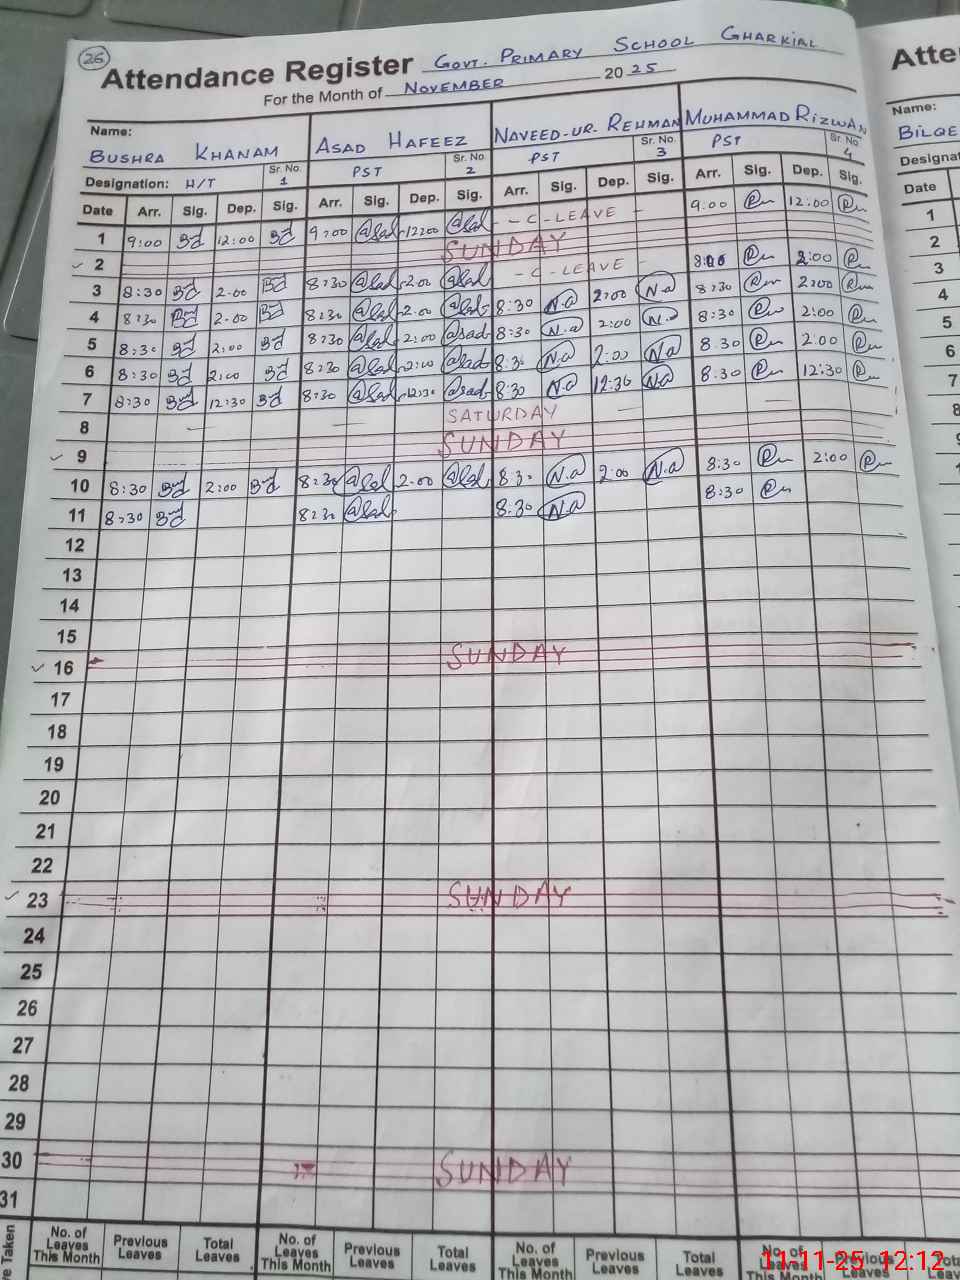 26
Attendance Register GOVT. PRIMARY SCHOOL GHARKIAL
For the Month of NOVEMBER 2025
Name: BUSHRA KHANAM ASAD HAFEEZ NAVEED-UR-REHMAN MUHAMMAD RIZWAN
Designation: H/T Sr. No. 1 PST Sr. No. 2 PST Sr. No. 3 PST Sr. No. 4
Date Arr. Sig. Dep. Sig. Arr. Sig. Dep. Sig. Arr. Sig. Dep. Sig. Arr. Sig. Dep. Sig.
1 9:00 12:00 9:00 Asad 12:00 Asad - - C - LEAVE - 9:00 12:00
2 SUNDAY
3 8:30 2:00 8:30 Asad 2:00 Asad - C - LEAVE - 2:00
4 8:30 2:00 8:30 Asad 2:00 Asad 8:30 N.a 2:00 N.a 8:30 2:00
5 8:30 2:00 8:30 Asad 2:00 Asad 8:30 N.a 2:00 N.a 8:30 2:00
6 8:30 2:00 8:30 Asad 2:00 Asad 8:30 N.a 2:00 N.a 8:30 2:00
7 8:30 12:30 8:30 Asad 12:30 Asad 8:30 N.a 12:30 N.a 8:30 12:30
8 — — SATURDAY — —
9 SUNDAY
10 8:30 2:00 8:30 Asad 2:00 Asad 8:30 N.a 2:00 N.a 8:30 2:00
11 8:30 8:30 Asad 8:30 N.a 8:30
12
13
14
15
16 SUNDAY
17
18
19
20
21
22
23 SUNDAY
24
25
26
27
28
29
30 SUNDAY
31
No. of Leaves This Month Previous Leaves Total Leaves No. of Leaves This Month Previous Leaves Total Leaves No. of Leaves This Month Previous Leaves Total Leaves No. of Leaves This Month Previous Leaves
Taken
Name:
Date
1
2
3
4
5
6
7
8
11-11-25 12:12